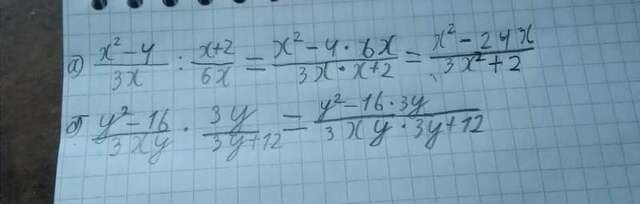 а) (x²-4)/(3x) : (x+2)/(6x) = (x²-4·6x)/(3x·x+2) = (x²-24x)/(3x²+2)
б) (y²-16)/(3xy) · (3y)/(3y+12) = (y²-16·3y)/(3xy·3y+12)